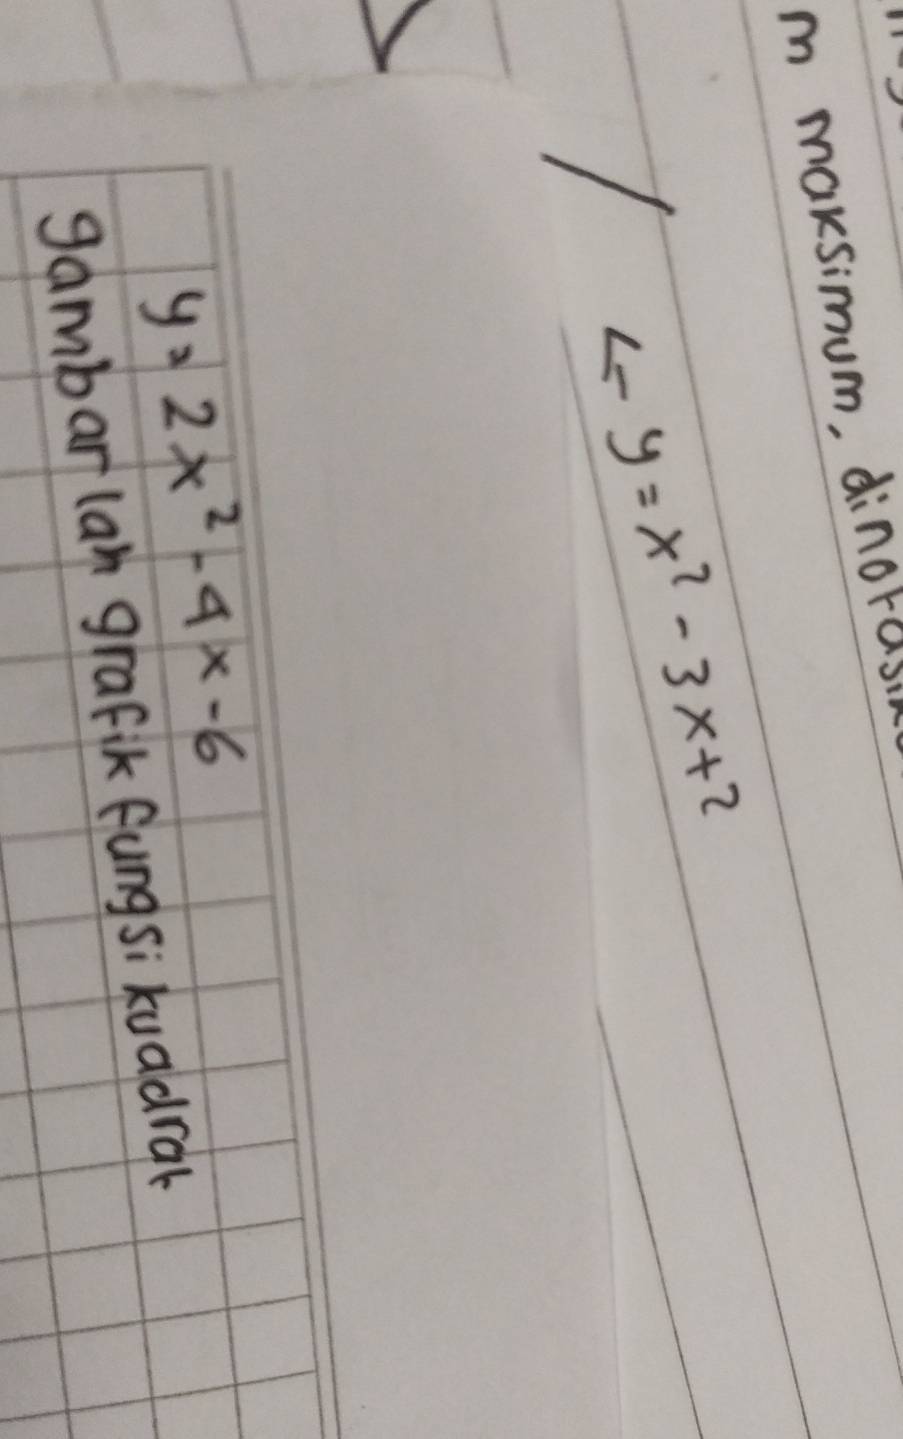 m maksimum, dinotasik
↳ y = x² - 3x + 2
y = 2x² - 4x - 6
gambarlah grafik fungsi kuadrat